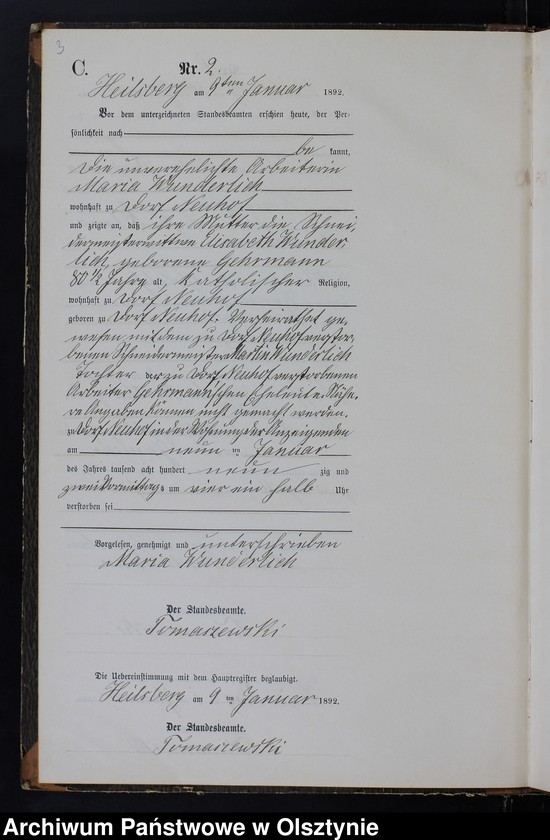 3
C.
Nr. 2.
Heilsberg am 9ten Januar 1892.
Vor dem unterzeichneten Standesbeamten erschien heute, der Per-
sönlichkeit nach
be kannt,
Die unverehelichte Arbeiterin
Maria Wunderlich
wohnhaft zu Dorf Neuhof
und zeigte an, daß ihre Mutter die Schnei,
dermeisterwittwe Elisabeth Wunder
lich, geborene Gehrmann
80 1/2 Jahre alt, Katholischer Religion,
wohnhaft zu Dorf Neuhof
geboren zu Dorf Neuhof. Verheirathet ge,
wesen mit dem zu Dorf Neuhof verstor,
benen Schneidermeister Martin Wunderlich
Tochter der zu Dorf Neuhof verstorbenen
Arbeiter Gehrmann'schen Eheleute. Nähe,
re Angaben können nicht gemacht werden.
zu Dorf Neuhof in der Wohnung der Anzeigenden
am neun ten Januar
des Jahres tausend acht hundert neun zig und
zwei Vormittags um vier ein halb Uhr
verstorben sei
Vorgelesen, genehmigt und unterschrieben
Maria Wunderlich
Der Standesbeamte.
Tomaszewski
Die Uebereinstimmung mit dem Hauptregister beglaubigt.
Heilsberg am 9 ten Januar 1892.
Der Standesbeamte.
Tomaszewski
Archiwum Państwowe w Olsztynie